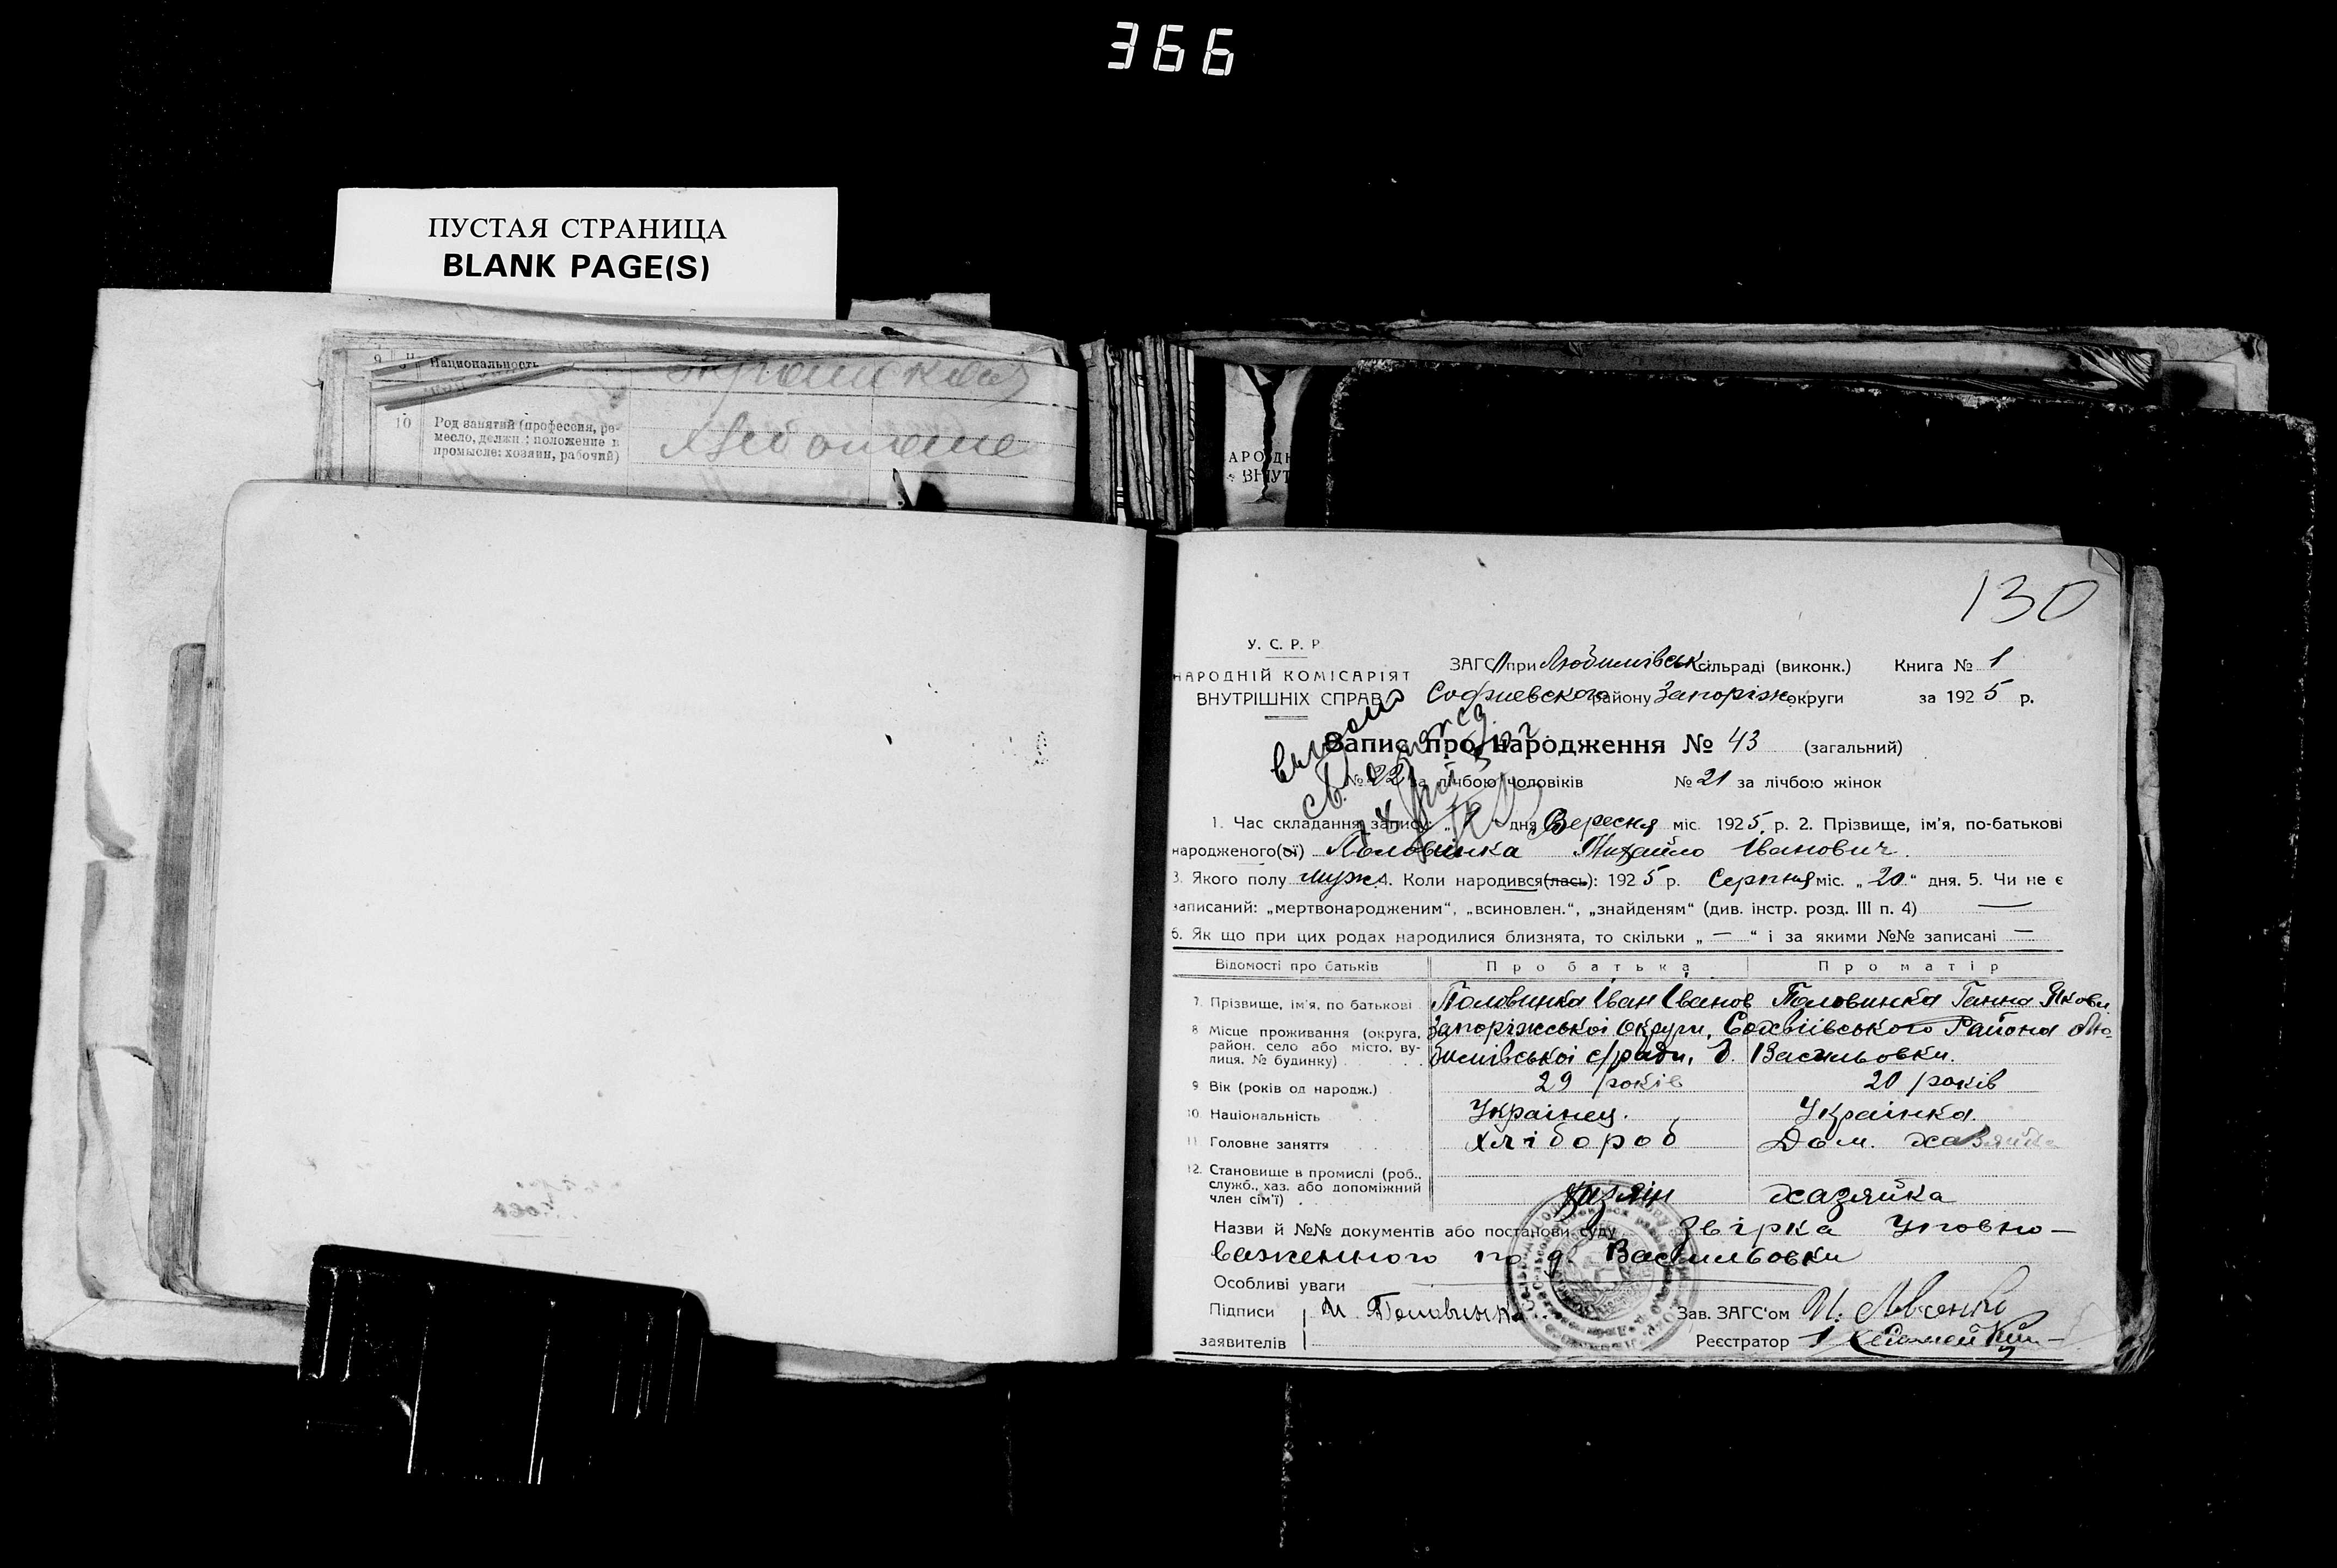 366
ПУСТАЯ СТРАНИЦА
BLANK PAGE(S)
9 Национальность
10 Род занятий (профессия, ре-
месло, должн : положение в
промысле: хозяин, рабочий)
130
У. С. Р. Р
НАРОДНІЙ КОМІСАРІЯТ
ВНУТРІШНІХ СПРАВ
ЗАГС при Любимівськ сільраді (виконк.) Книга № 1
Софиевского району Запоріж округи за 1925 р.
Запис про народження № 43 (загальний)
№ 22 за лічбою чоловіків № 21 за лічбою жінок
1. Час складання запису: дня Вересня міс. 1925 р. 2. Прізвище, ім'я, по-батькові
народженого(ої) Половинка Михайло Іванович.
3. Якого полу муж. 4. Коли народився(лась): 1925 р. Серпня міс. „20“ дня. 5. Чи не є
записаний: „мертвонародженим“, „всиновлен.“, „знайденям“ (див. інстр. розд. III п. 4) —
6. Як що при цих родах народилися близнята, то скільки „—“ і за якими №№ записані —
Відомості про батьків Про батька Про матір
7. Прізвище, ім'я, по батькові Половинка Іван Іванов Половинка Ганна Якови.
8 Місце проживання (округа,
район. село або місто, ву-
лиця. № будинку)
Запоріжської Округи, Софіївського Района Лю-
бимівської с/ради, д. Васильовки.
9 Вік (років од народж.) 29 років 20 років
10. Національність Українец. Українка.
11 Головне заняття хлібороб Дом. хазяйка
12. Становище в промислі (роб.,
служб., хаз. або допоміжний
член сім'ї)
хазяїн хазяйка
Назви й №№ документів або постанови суду Звірка Уповно-
важенного по д. Васильовки
Особливі уваги
Підписи И. Половинка Зав. ЗАГС'ом
заявителів Реєстратор